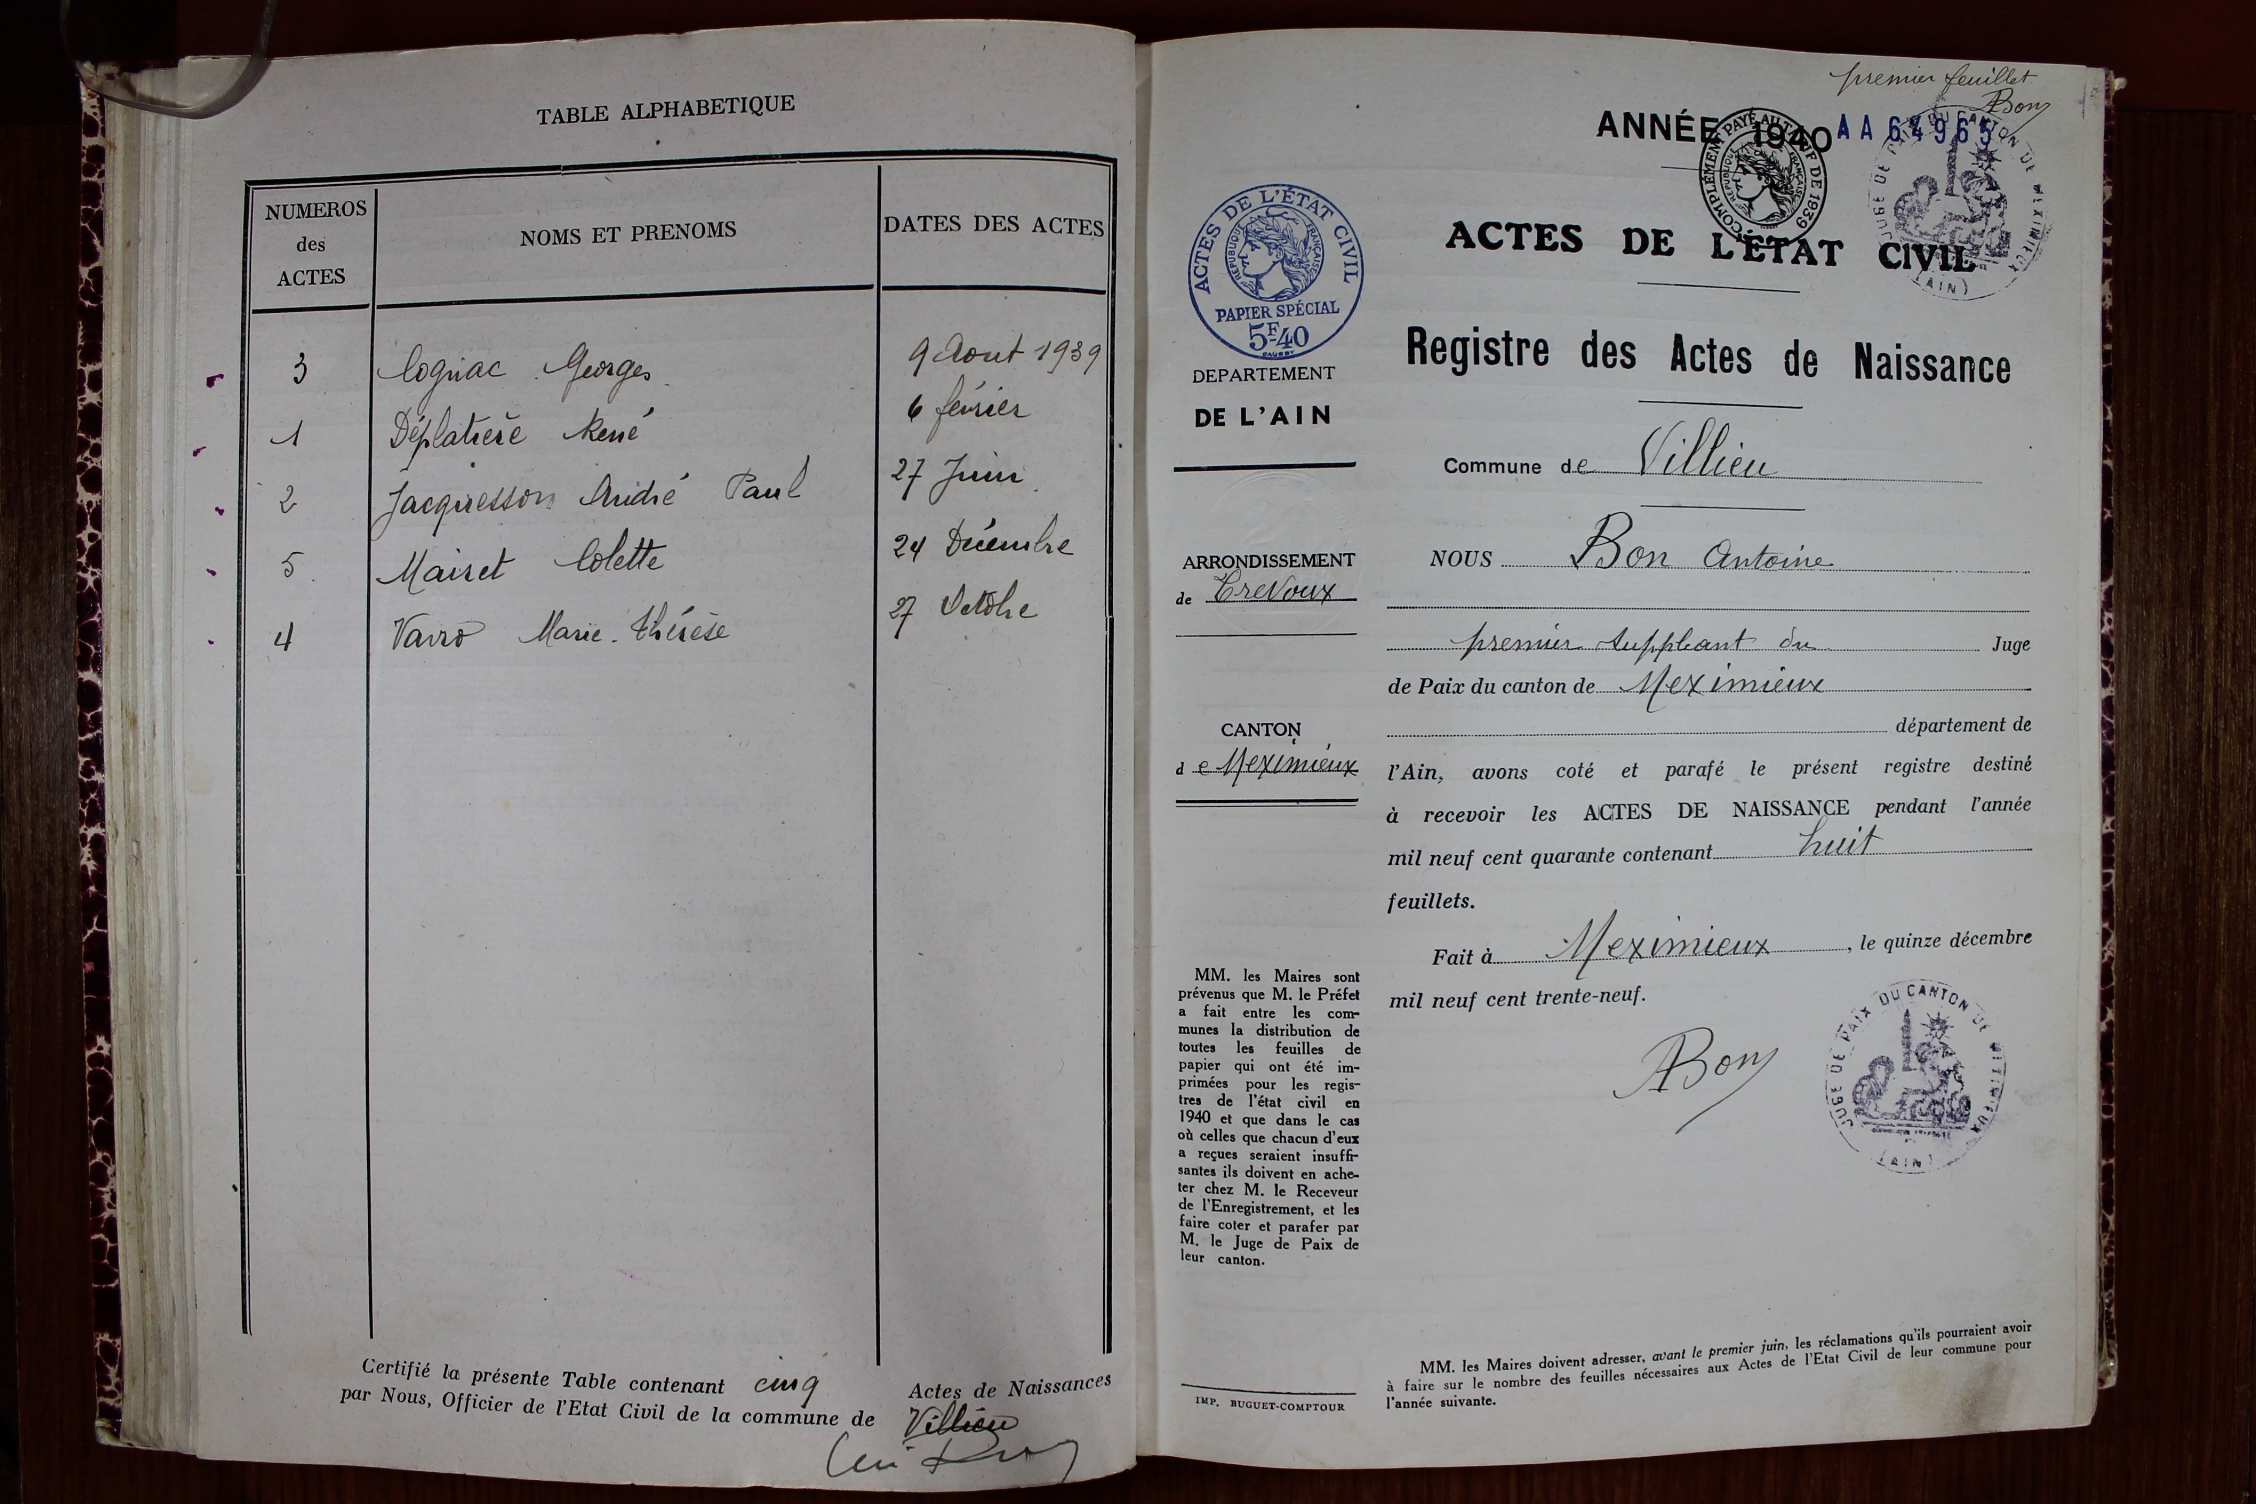 TABLE ALPHABETIQUE
NUMEROS des ACTES
NOMS ET PRENOMS
DATES DES ACTES
3 Cogniac Georges 9 Aout 1939
1 Déplatière René 6 février
2 Jacquesson André Paul 27 Juin
5 Mairet Colette 24 Décembre
4 Varro Marie-Thérèse 27 Octobre
Certifié la présente Table contenant cinq Actes de Naissances
par Nous, Officier de l'Etat Civil de la commune de Villieu
premier feuillet
ABon
ANNÉE 1940
AA 64965
COMPLÉMENT PAYÉ AU TARIF DE 1939
RÉPUBLIQUE FRANÇAISE
JUGE DE PAIX DU CANTON DE MEXIMIEUX
(AIN)
ACTES DE L'ÉTAT CIVIL
RÉPUBLIQUE FRANÇAISE
PAPIER SPÉCIAL
5F40
DEPARTEMENT
DE L'AIN
ARRONDISSEMENT
de Trevoux
CANTON
de Meximieux
MM. les Maires sont
prévenus que M. le Préfet
a fait entre les com-
munes la distribution de
toutes les feuilles de
papier qui ont été im-
primées pour les regis-
tres de l'état civil en
1940 et que dans le cas
où celles que chacun d'eux
a reçues seraient insuffi-
santes ils doivent en ache-
ter chez M. le Receveur
de l'Enregistrement, et les
faire coter et parafer par
M. le Juge de Paix de
leur canton.
IMP. BUGUET-COMPTOUR
ACTES DE L'ÉTAT CIVIL
Registre des Actes de Naissance
Commune de Villieu
NOUS Bon Antoine
premier suppleant du Juge
de Paix du canton de Meximieux
département de
l'Ain, avons coté et parafé le présent registre destiné
à recevoir les ACTES DE NAISSANCE pendant l'année
mil neuf cent quarante contenant huit
feuillets.
Fait à Meximieux, le quinze décembre
mil neuf cent trente-neuf.
ABon
JUGE DE PAIX DU CANTON DE MEXIMIEUX
(AIN)
MM. les Maires doivent adresser, avant le premier juin, les réclamations qu'ils pourraient avoir
à faire sur le nombre des feuilles nécessaires aux Actes de l'Etat Civil de leur commune pour
l'année suivante.